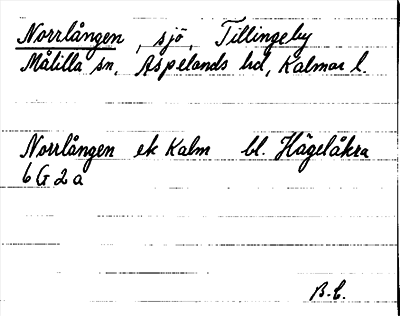 Norrlången, sjö, Tillingeby
Målilla sn, Aspelands hd, Kalmar l.
Norrlången ek Kalm bl. Hägelåkra
6 G 2 a
B.E.